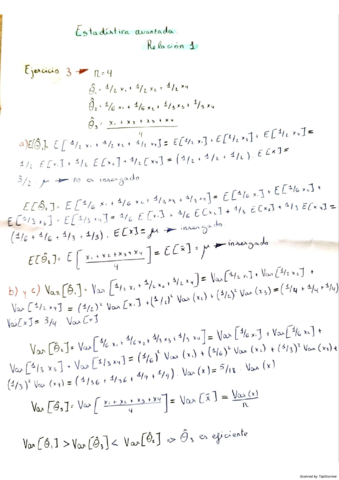 Estadística avanzada
Relación 1
Ejercicio 3 → n=4
θ̂₁ = 1/2 x₁ + 1/2 x₂ + 1/2 x₄
θ̂₂ = 1/6 x₁ + 1/6 x₂ + 1/3 x₃ + 1/3 x₄
θ̂₃ = (x₁ + x₂ + x₃ + x₄)/4
a) E[θ̂₁] = E[1/2 x₁ + 1/2 x₂ + 1/2 x₄] = E[1/2 x₁] + E[1/2 x₂] + E[1/2 x₄] =
1/2 E[x₁] + 1/2 E[x₂] + 1/2 [x₄] = (1/2 + 1/2 + 1/2) · E[x] =
3/2 μ → no es insesgado
E[θ̂₂] = E[1/6 x₁ + 1/6 x₂ + 1/3 x₃ + 1/3 x₄] = E[1/6 x₁] + E[1/6 x₂] +
E[1/3 x₃] + E[1/3 x₄] = 1/6 E[x₁] + 1/6 E[x₂] + 1/3 E[x₃] + 1/3 E[x₄] =
(1/6 + 1/6 + 1/3 + 1/3) · E[x] = μ → insesgado
E[θ̂₃] = E[(x₁ + x₂ + x₃ + x₄)/4] = E[x̄] = μ → insesgado
b) y c) Var[θ̂₁] = Var[1/2 x₁ + 1/2 x₂ + 1/2 x₄] = Var[1/2 x₁] + Var[1/2 x₂] +
Var[1/2 x₄] = (1/2)² Var[x₁] + (1/2)² Var(x₂) + (1/2)² Var(x₃) = (1/4 + 1/4 + 1/4)
Var[x] = 3/4 Var[x]
Var[θ̂₂] = Var[1/6 x₁ + 1/6 x₂ + 1/3 x₃ + 1/3 x₄] = Var[1/6 x₁] + Var[1/6 x₂] +
Var[1/3 x₃] + Var[1/3 x₄] = (1/6)² Var(x₁) + (1/6)² Var(x₂) + (1/3)² Var(x₃) +
(1/3)² Var(x₄) = (1/36 + 1/36 + 1/9 + 1/9) · Var(x) = 5/18 · Var(x)
Var[θ̂₃] = Var[(x₁ + x₂ + x₃ + x₄)/4] = Var[x̄] = Var(x)/n
Var[θ̂₁] > Var[θ̂₃] < Var[θ̂₂] => θ̂₃ es eficiente
Scanned by TapScanner